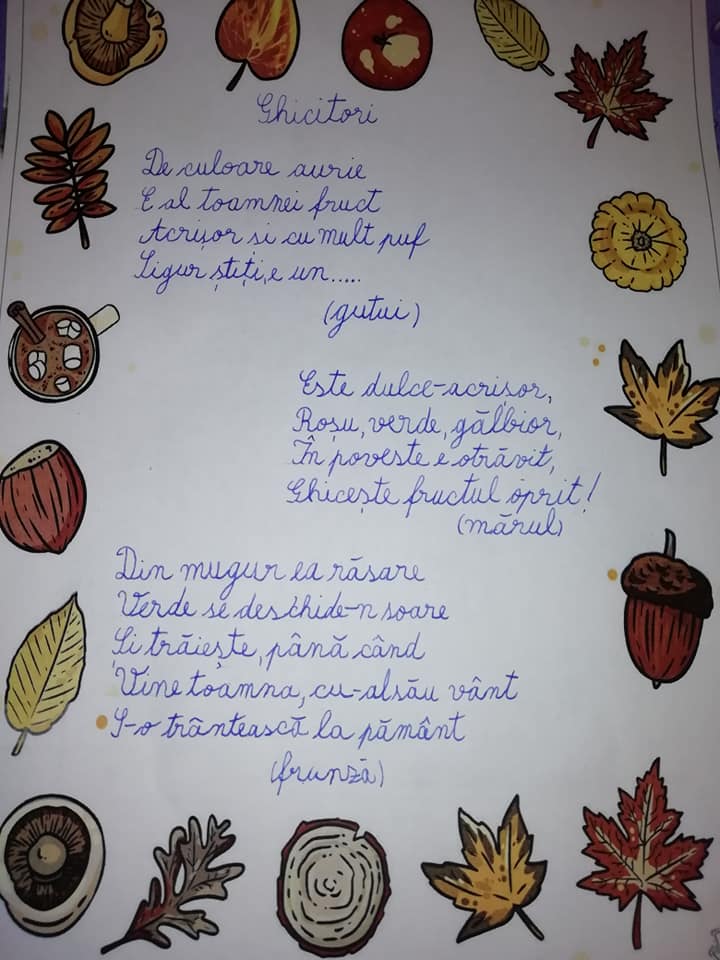 Ghicitori
De culoare aurie
E al toamnei fruct
Acrișor si cu mult puf
Sigur știți, e un.....
(gutui)
Este dulce-acrișor,
Roșu, verde, gălbior,
În poveste e otrăvit,
Ghicește fructul oprit!
(mărul)
Din mugur ea răsare
Verde se deschide-n soare
Si trăiește, până când
Vine toamna, cu-al său vânt
S-o trântească la pământ
(frunză)